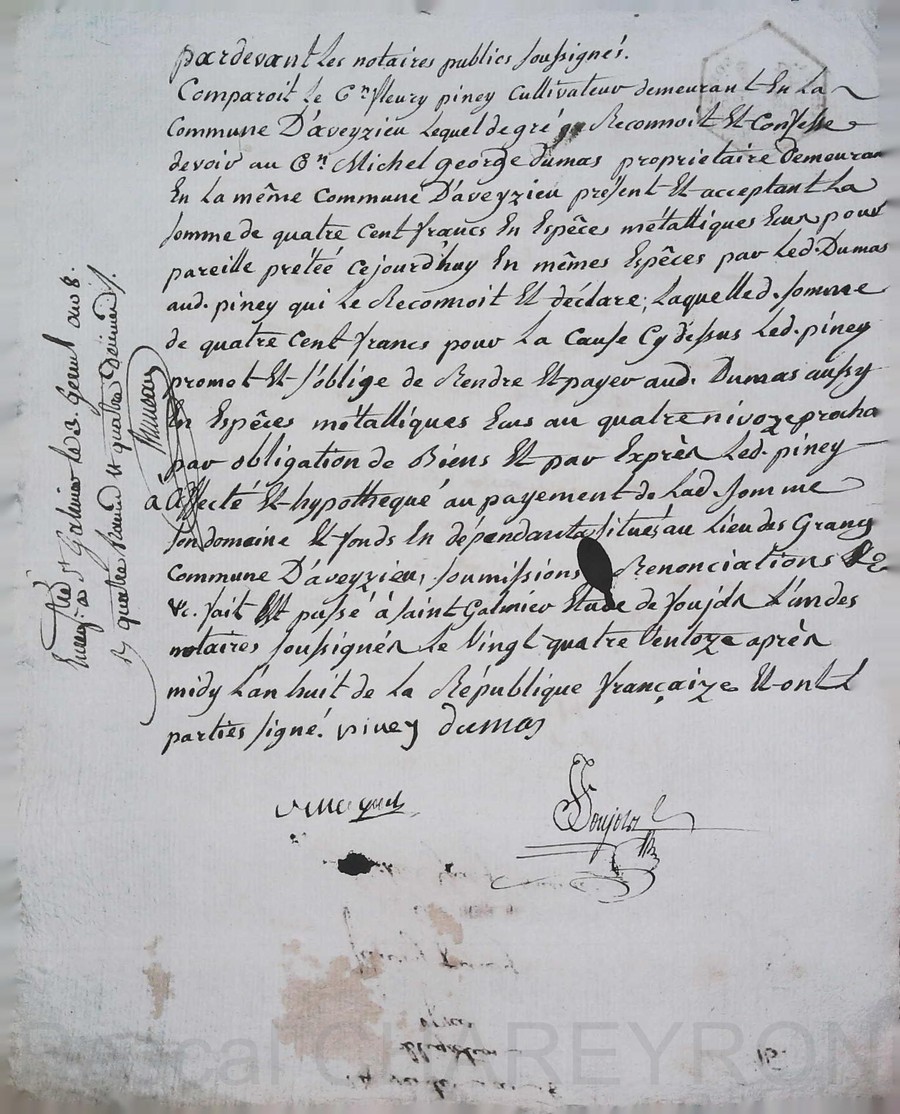 pardevant Les notaires publics soussignés.
Comparoit Le Cn fleury piney Cultivateur demeurant En La
Commune D'aveyzieu Lequel de gré Reconnoit Et Confesse
devoir au Cn Michel george dumas proprietaire demeuran
En La même Commune D'aveyzieu présent Et acceptant La
somme de quatre Cent francs En Espêces métalliques Ecus pour
pareille prétéé Cejourd'huy En mêmes Espêces par Led. Dumas
aud. piney qui Le Reconnoit Et déclare; Laquelle d. somme
de quatre Cent francs pour La Cause Cy dessus Led. piney
promet Et s'oblige de Rendre Et payer aud. Dumas aussy
En Espêces métalliques Ecus au quatre nivoze procha
par obligation de Biens Et par Exprès Led. piney
à affecté Et hypothequé au payement de Lad. somme
son domaine Et fonds En dépendants situés au Lieu des Granges
Commune D'aveyzieu, soumissions Renonciations &c
&c. fait Et passé à saint Galmier Etude de soujols L'un des
notaires soussignés Le Vingt quatre Ventoze après
midy L'an huit de La République françaize Et ont L
parties signé. piney dumas
Soujols
Enreg. à St Galmier le 3. Germl an 8.
quatre francs et quatre decimes
CHAREYRON